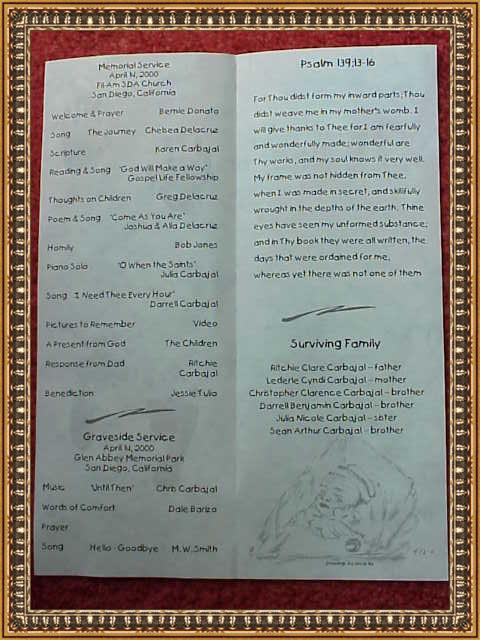 Memorial Service
April 14, 2000
Fil-Am SDA Church
San Diego, California
Welcome & Prayer Bernie Donato
Song The Journey Chebea Delacruz
Scripture Karen Carbajal
Reading & Song "God Will Make a Way"
Gospel Life Fellowship
Thoughts on Children Greg Delacruz
Poem & Song "Come As You Are"
Joshua & Alia Delacruz
Homily Bob Jones
Piano Solo "O When the Saints"
Julia Carbajal
Song "I Need Thee Every Hour"
Darrell Carbajal
Pictures to Remember Video
A Present from God The Children
Response from Dad Ritchie
Carbajal
Benediction Jessie Tulio
Graveside Service
April 14, 2000
Glen Abbey Memorial Park
San Diego, California
Music "Until Then" Chris Carbajal
Words of Comfort Dale Bariza
Prayer
Song Hello - Goodbye M.W. Smith
Psalm 139:13-16
For Thou didst form my inward parts; Thou
didst weave me in my mother's womb. I
will give thanks to Thee for I am fearfully
and wonderfully made; wonderful are
Thy works, and my soul knows it very well.
My frame was not hidden from Thee,
when I was made in secret, and skillfully
wrought in the depths of the earth. Thine
eyes have seen my unformed substance;
and in Thy book they were all written, the
days that were ordained for me,
whereas yet there was not one of them
Surviving Family
Ritchie Clare Carbajal - father
Lederle Cyndi Carbajal - mother
Christopher Clarence Carbajal - brother
Darrell Benjamin Carbajal - brother
Julia Nicole Carbajal - sister
Sean Arthur Carbajal - brother